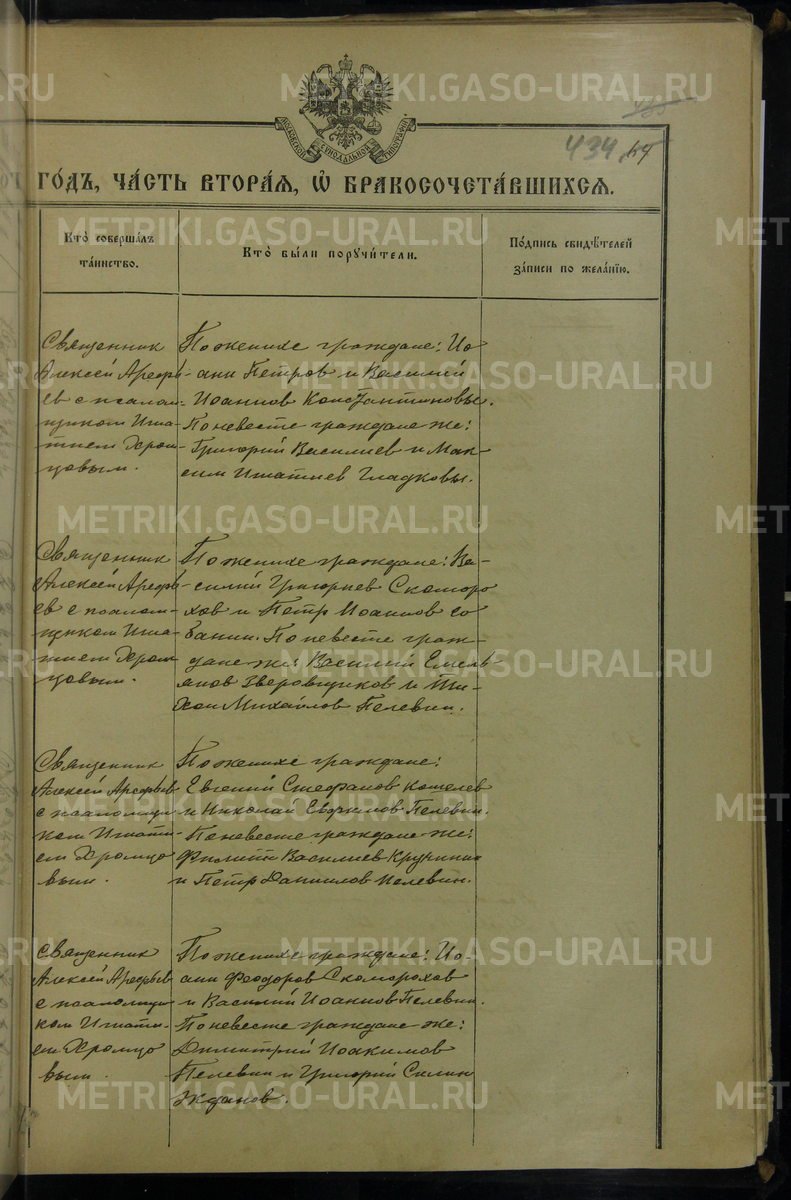 435
434.
64
МОСКОВСКОЙ СѴНОДАЛЬНОЙ ТИПОГРАФІИ
ГОДЪ, ЧАСТЬ ВТОРАЯ, Ѡ БРАКОСОЧЕТАВШИХСЯ.
Кто совершалъ
таинство.
Кто были поручители.
Подпись свидѣтелей
записи по желанію.
Священник
Алексей Арефь-
ев с псалом-
щиком Игна-
тием Хром-
цовым.
По женихе граждане: Ио-
анн Петров и Василий
Иоаннов Константиновы.
По невесте граждане же:
Григорий Василиев и Мак-
сим Игнатиев Гладковы.
Священник
Алексей Арефь-
ев с псалом-
щиком Игна-
тием Хром-
цовым.
По женихе граждане: Ва-
силий Григориев Скоморо
хов и Петр Иоаннов Со
банин. По невесте граж-
дане же: Василий Емель-
янов Зверовщиков и Ти-
хон Михайлов Пелевин.
Священник
Алексей Арефьев
с псаломщи
ком Игнати-
ем Хромцо
вым.
По женихе граждане:
Евгений Стефанов Кошелев
и Николай Евфимов Пелевин.
По невесте граждане же:
Филипп Василиев Кручинин
и Петр Даниилов Пелевин.
Священник
Алексей Арефьев
с псаломщи
ком Игнати-
ем Хромцо
вым.
По женихе граждане: Ио-
анн Феодоров Скоморохов
и Василий Иоаннов Пелевин.
По невесте граждане же:
Димитрий Иоакимов
Пелевин и Григорий Силин
Жданов.
METRIKI.GASO-URAL.RU